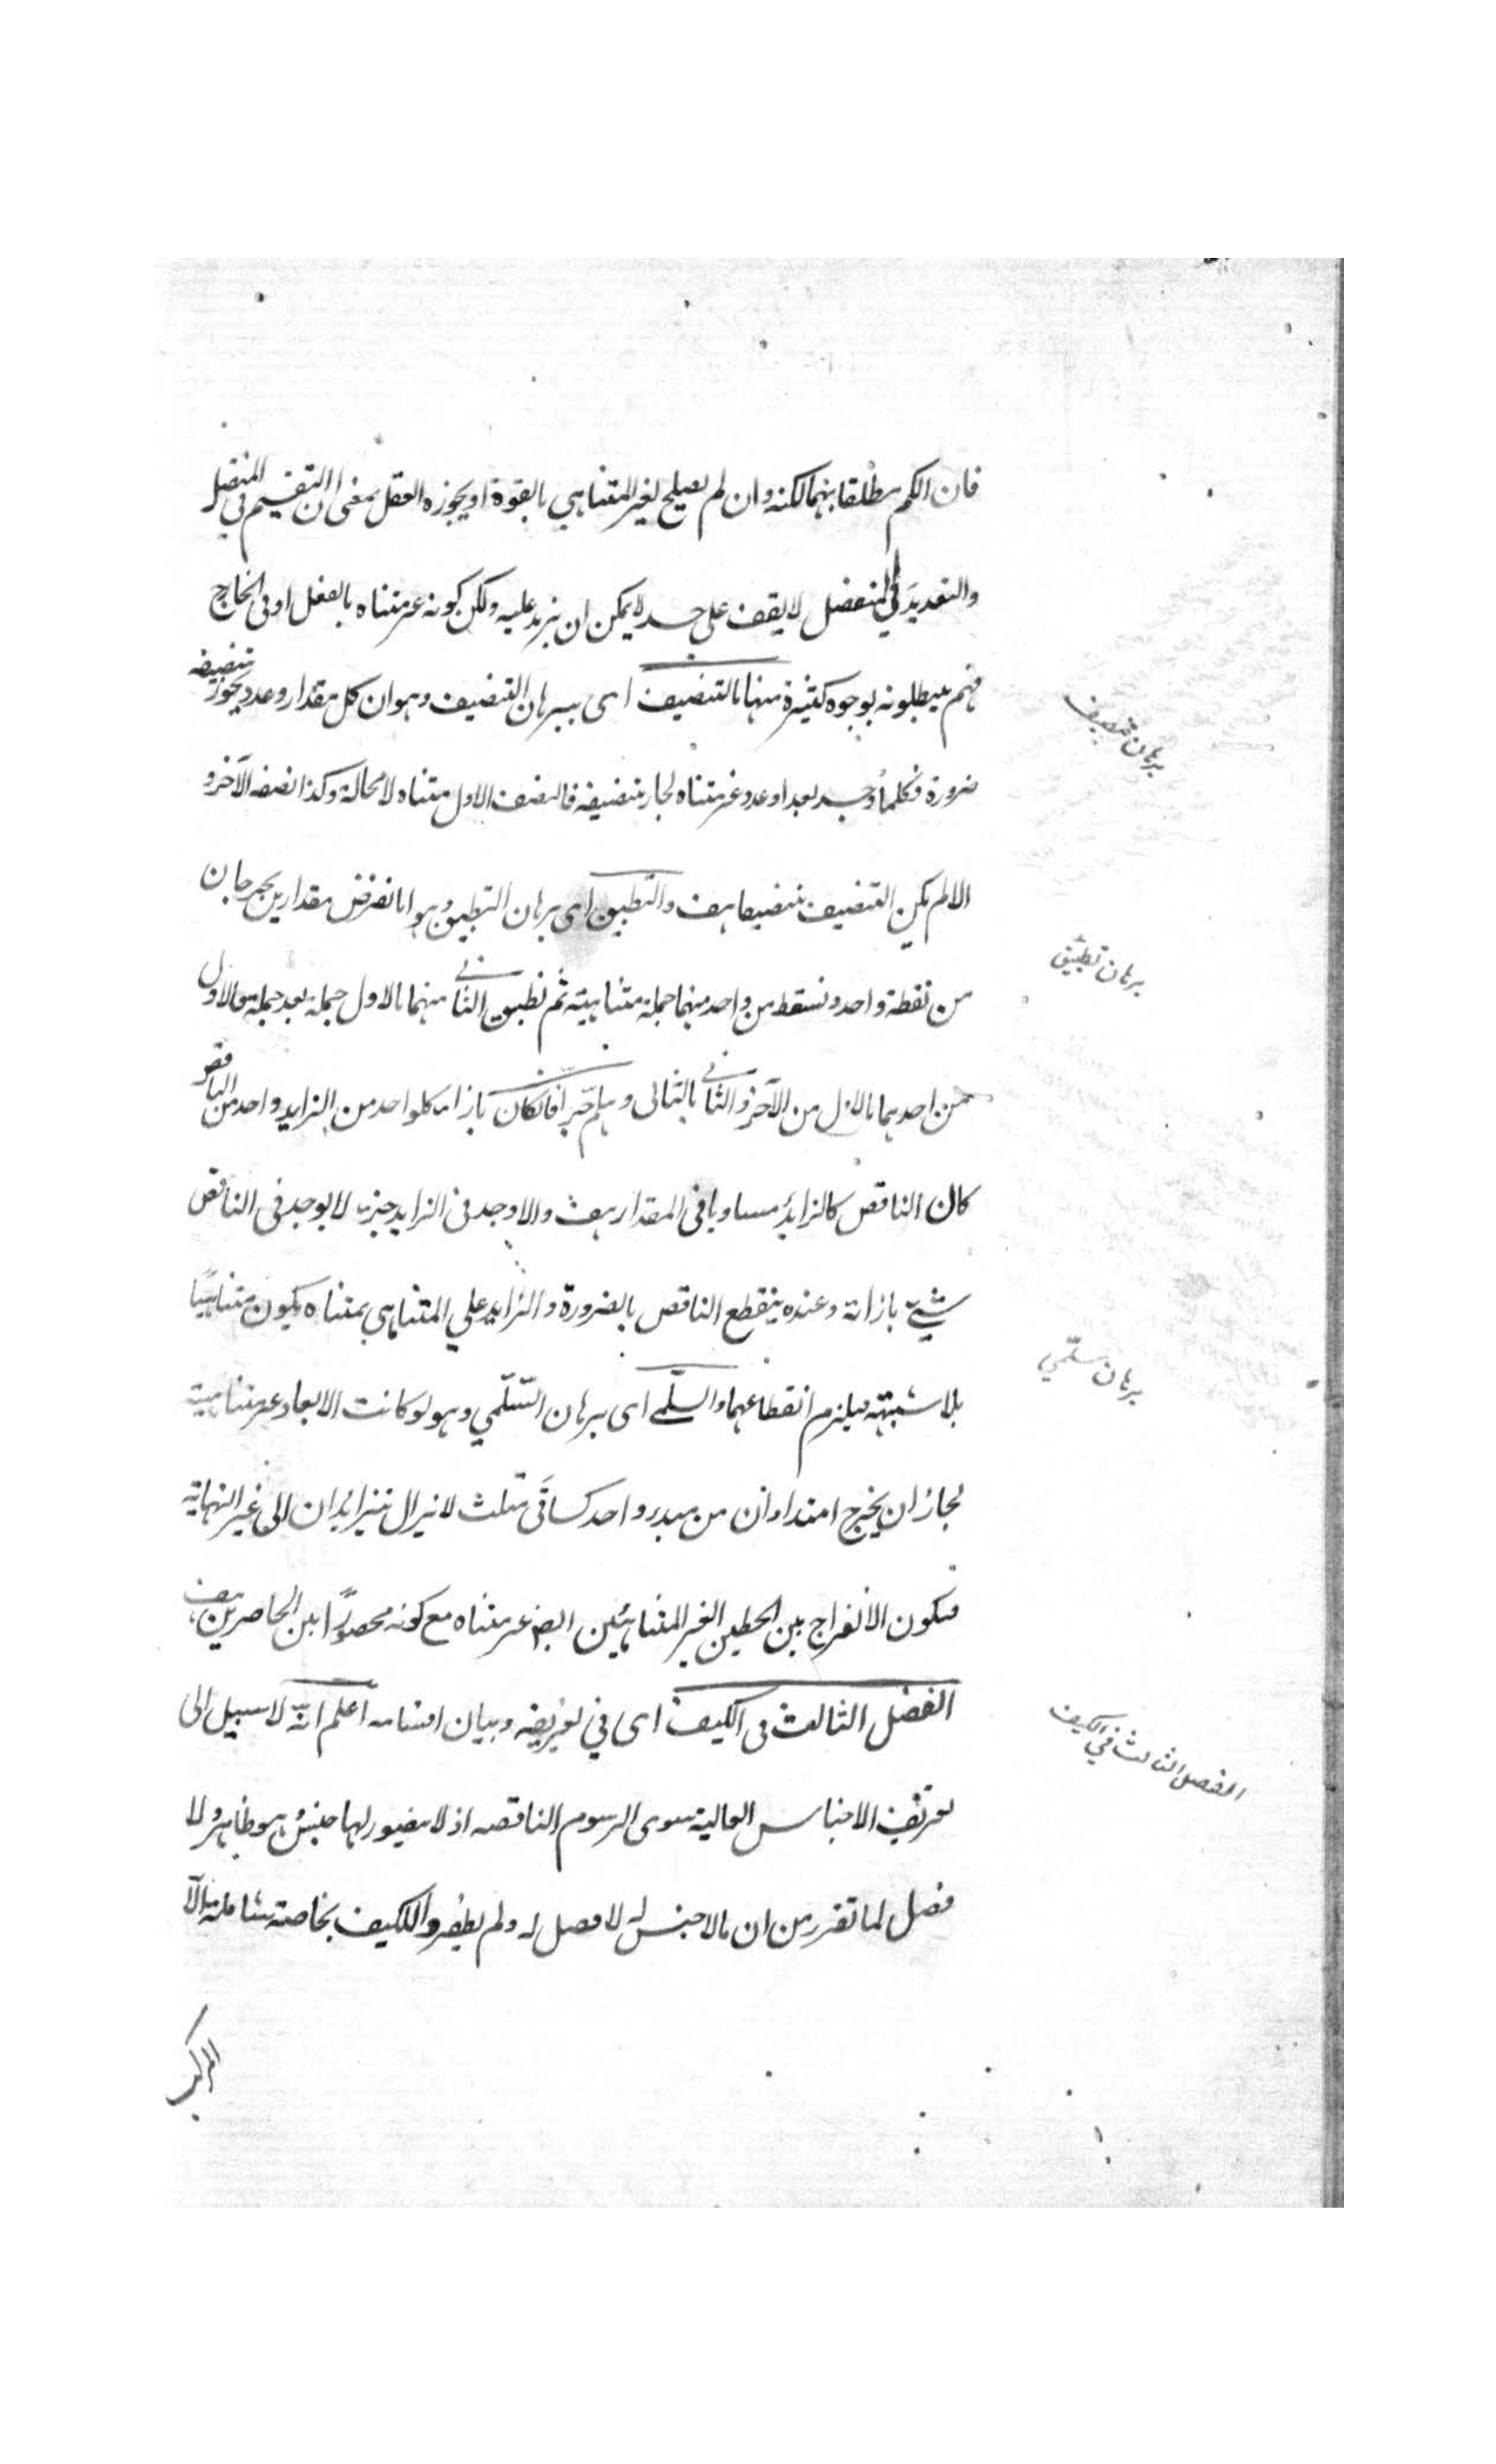 فان الكم مطلقا بنهما لكنه وان لم يصلح لغير المتناهي بالقوة او يجوزه العقل بمعنى ان التقسيم في المتصل
والتعديد في المنفصل لا يقف على حد لا يمكن ان يزيد عليه ولكن كونه غير متناه بالفعل او في الخارج
فهم يبطلونه بوجوه كثيرة منها بالتنصيف اى ببرهان التنصيف وهو ان كل مقدار وعدد يجوز تنصيفه
ضرورة فكلما وجد بعد او عدد غير متناه لجاز تنصيفه فالنصف الاول متناه لا محالة وكذا نصفه الآخر و
الا لم يكن التنصيف تنصيفا هف والتطبيق اى برهان التطبيق وهو انا نفرض مقدارين يخرجان
من نقطة واحد ونسقط من واحد منهما جملة متناهية ثم نطبق الثاني منهما بالاول جملة بعد جملة فالاول
من احدهما بالاول من الآخر والثاني بالثانى وهلم جرا فان كان بازاء كلواحد من الزايد واحد من الناقص
كان الناقص كالزايد مساويا فى المقدار هف والا وجد فى الزايد جزء لا يوجد فى الناقص
شيئ بازائه وعنده ينقطع الناقص بالضرورة والزايد على المتناهى بمتناه يكون متناهيًا
بلا شبهة فيلزم انقطاعهما والسلّمى اى برهان السّلّمي وهو لو كانت الابعاد غير متناهية
لجاز ان يخرج امتدادان من مبدء واحد كساقَى مثلث لا يزال يتزايدان الى غير النهاية
فيكون الانفراج بين الخطين الغير المتناهيين ايضا غير متناه مع كونه محصورًا بين الحاصرين هف
الفصل الثالث فى الكيف اى في تعريفه وبيان اقسامه اعلم انّه لا سبيل الى
تعريف الاجناس العالية سوى الرسوم الناقصه اذ لا يتصور لها جنس وهو ظاهر ولا
فصل لما تقرر من ان ما لا جنس له لا فصل له ولم يظفروا للكيف بخاصة شاملة الا
برهان تنصيف
برهان تطبيق
برهان سلّمي
الفصل الثالث في الكيف